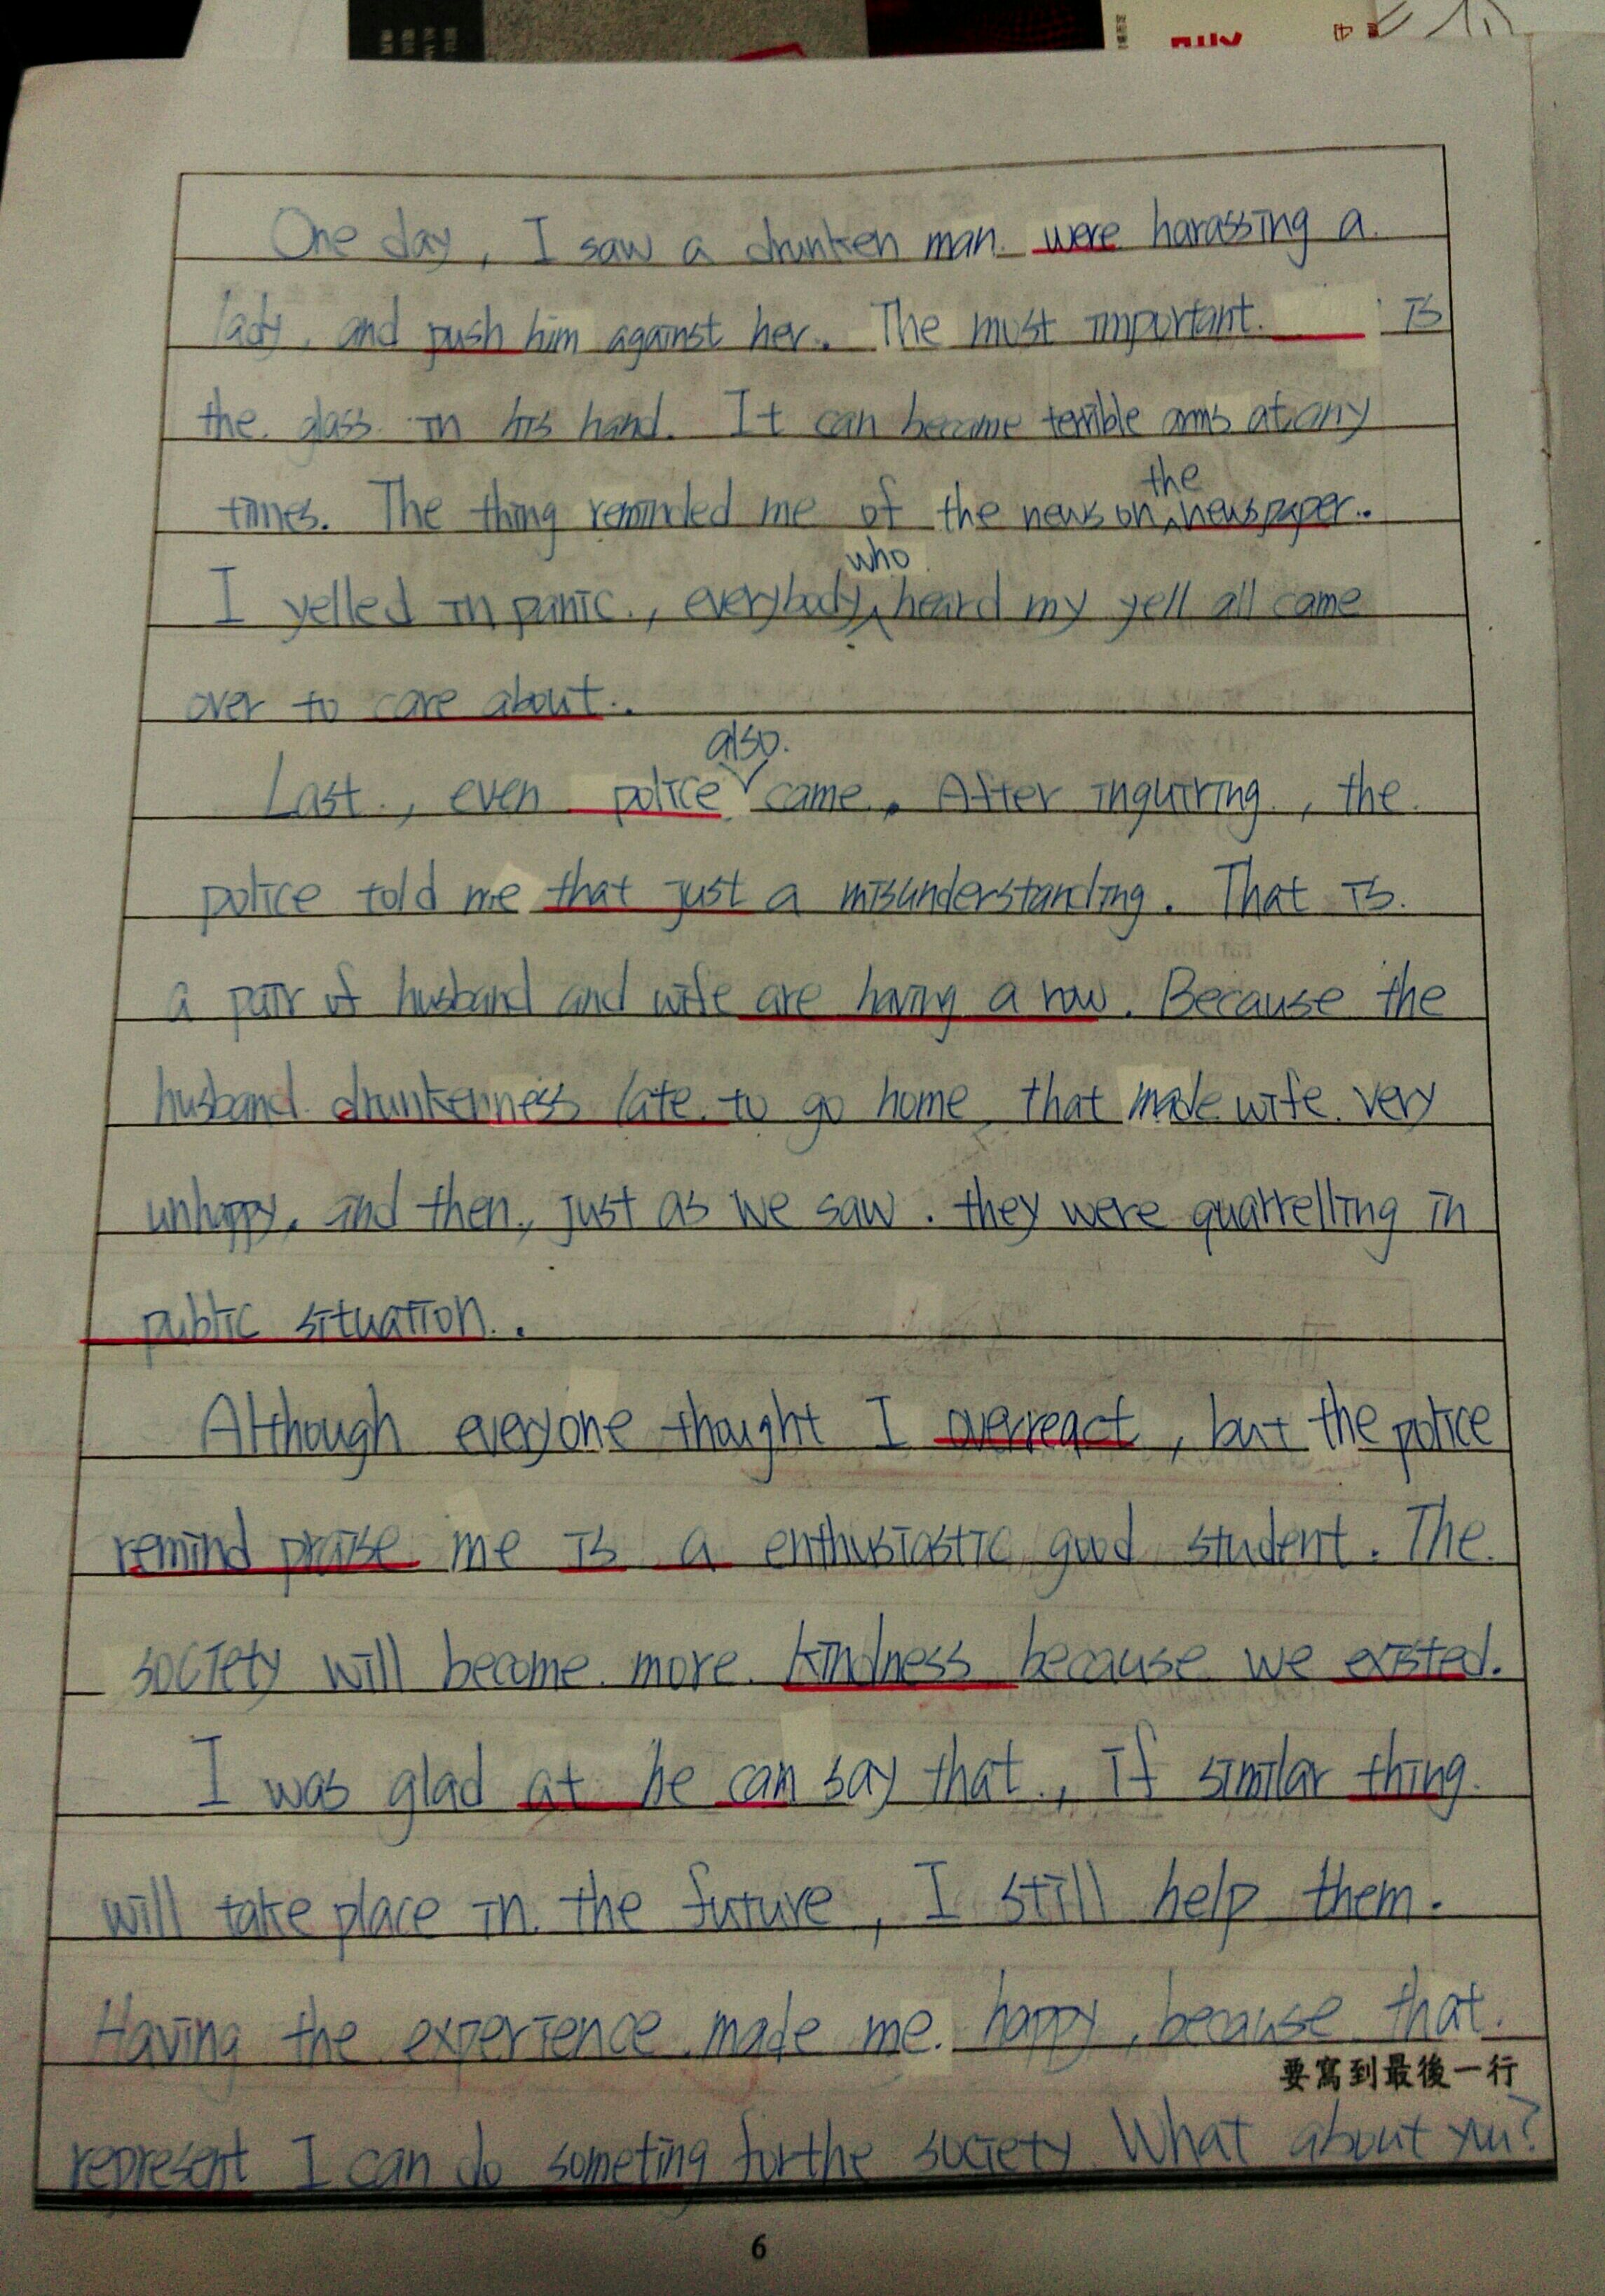 One day, I saw a drunken man were harassing a
lady, and push him against her. The most important is
the glass in his hand. It can become terrible arms at any
times. The thing reminded me of the news on the newspaper.
I yelled in panic, everybody who heard my yell all came
over to care about.
Last, even police also came. After inquiring, the
police told me that just a misunderstanding. That is
a pair of husband and wife are having a row. Because the
husband drunkenness late to go home, that made wife very
unhappy, and then, just as we saw. they were quarrelling in
public situation.
Although everyone thought I overreact, but the police
remind praise me is a enthusiastic good student. The
society will become more kindness because we existed.
I was glad at he can say that, if similar thing
will take place in the future, I still help them.
Having the experience made me happy, because that
要寫到最後一行
represent I can do someting for the society. What about you?
6